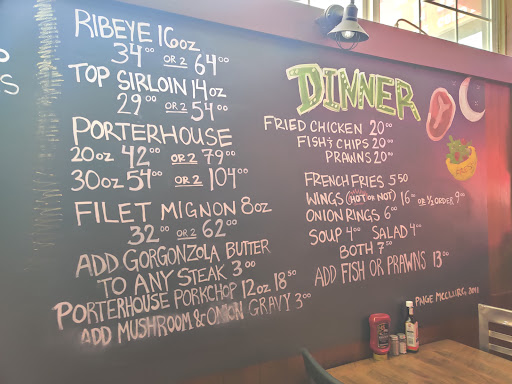 RIBEYE 16oz
34⁰⁰ OR 2 64⁰⁰
TOP SIRLOIN 14oz
29⁰⁰ OR 2 54⁰⁰
PORTERHOUSE
20oz 42⁰⁰ OR 2 79⁰⁰
30oz 54⁰⁰ OR 2 104⁰⁰
FILET MIGNON 8oz
32⁰⁰ OR 2 62⁰⁰
ADD GORGONZOLA BUTTER
TO ANY STEAK 3⁰⁰
PORTERHOUSE PORKCHOP 12oz 18⁵⁰
ADD MUSHROOM & ONION GRAVY 3⁰⁰
DINNER
FRIED CHICKEN 20⁰⁰
FISH & CHIPS 20⁰⁰
PRAWNS 20⁰⁰
FRENCH FRIES 5⁵⁰
WINGS (HOT OR NOT) 16⁰⁰ OR ½ ORDER 9⁰⁰
ONION RINGS 6⁰⁰
SOUP 4⁰⁰ SALAD 4⁰⁰
BOTH 7⁵⁰
ADD FISH OR PRAWNS 13⁰⁰
PAGE